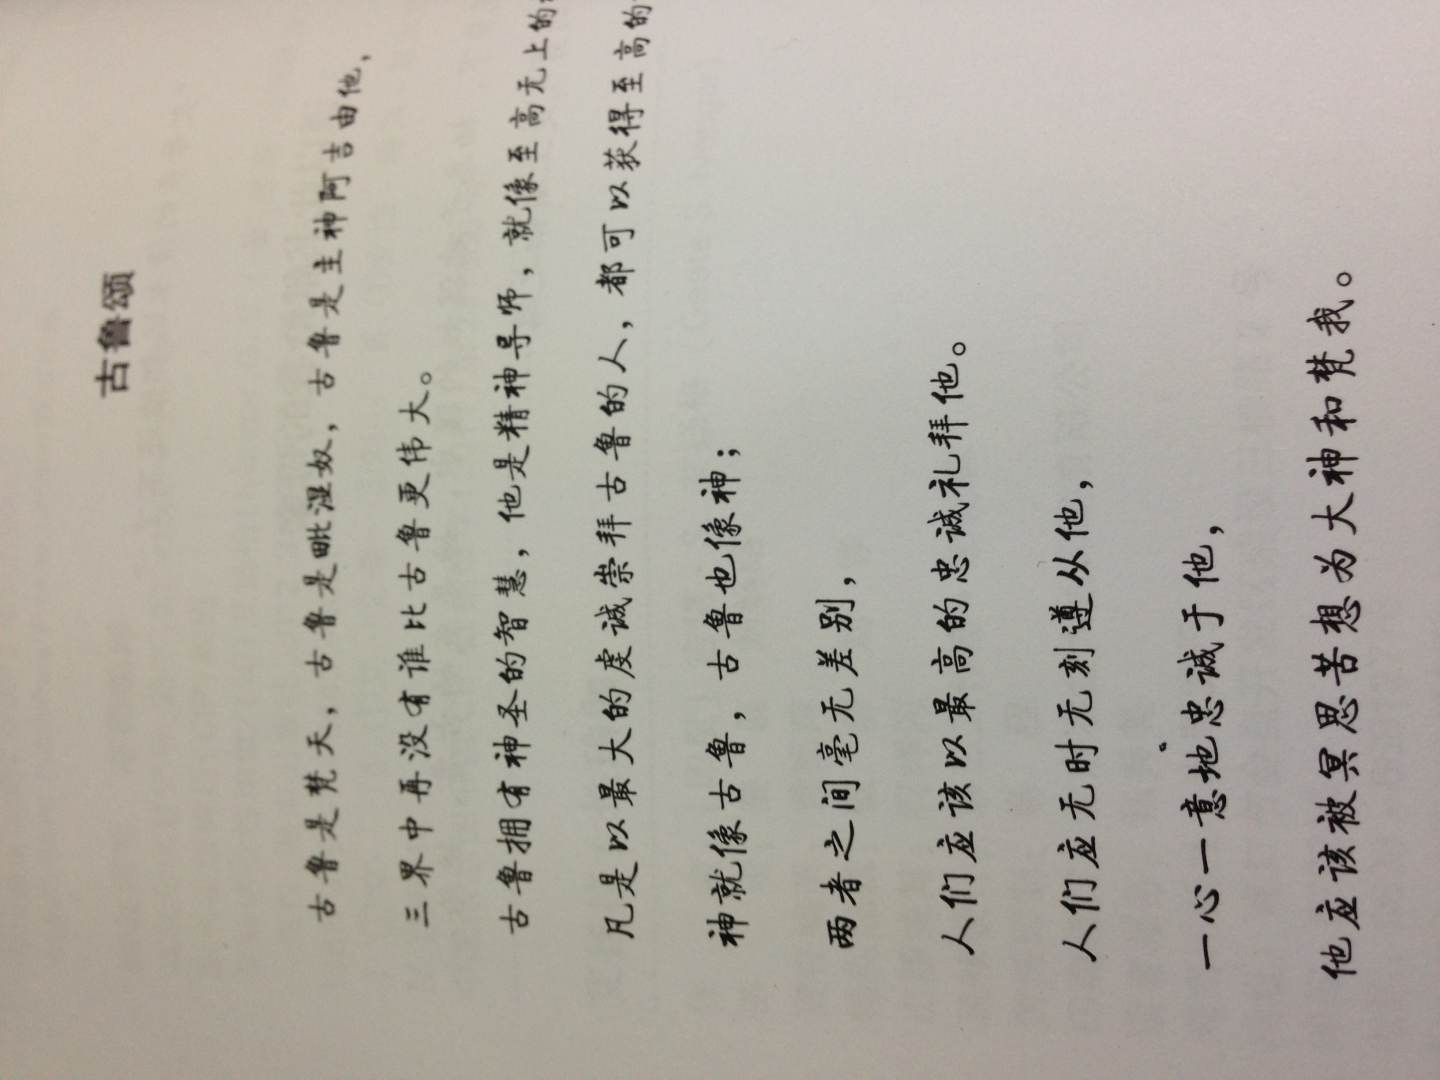 古鲁颂
古鲁是梵天，古鲁是毗湿奴，古鲁是主神阿吉由他，
三界中再没有谁比古鲁更伟大。
古鲁拥有神圣的智慧，他是精神导师，就像至高无上的
凡是以最大的虔诚崇拜古鲁的人，都可以获得至高的
神就像古鲁，古鲁也像神；
两者之间毫无差别，
人们应该以最高的忠诚礼拜他。
人们应无时无刻遵从他，
一心一意地忠诚于他，
他应该被冥思苦想为大神和梵我。